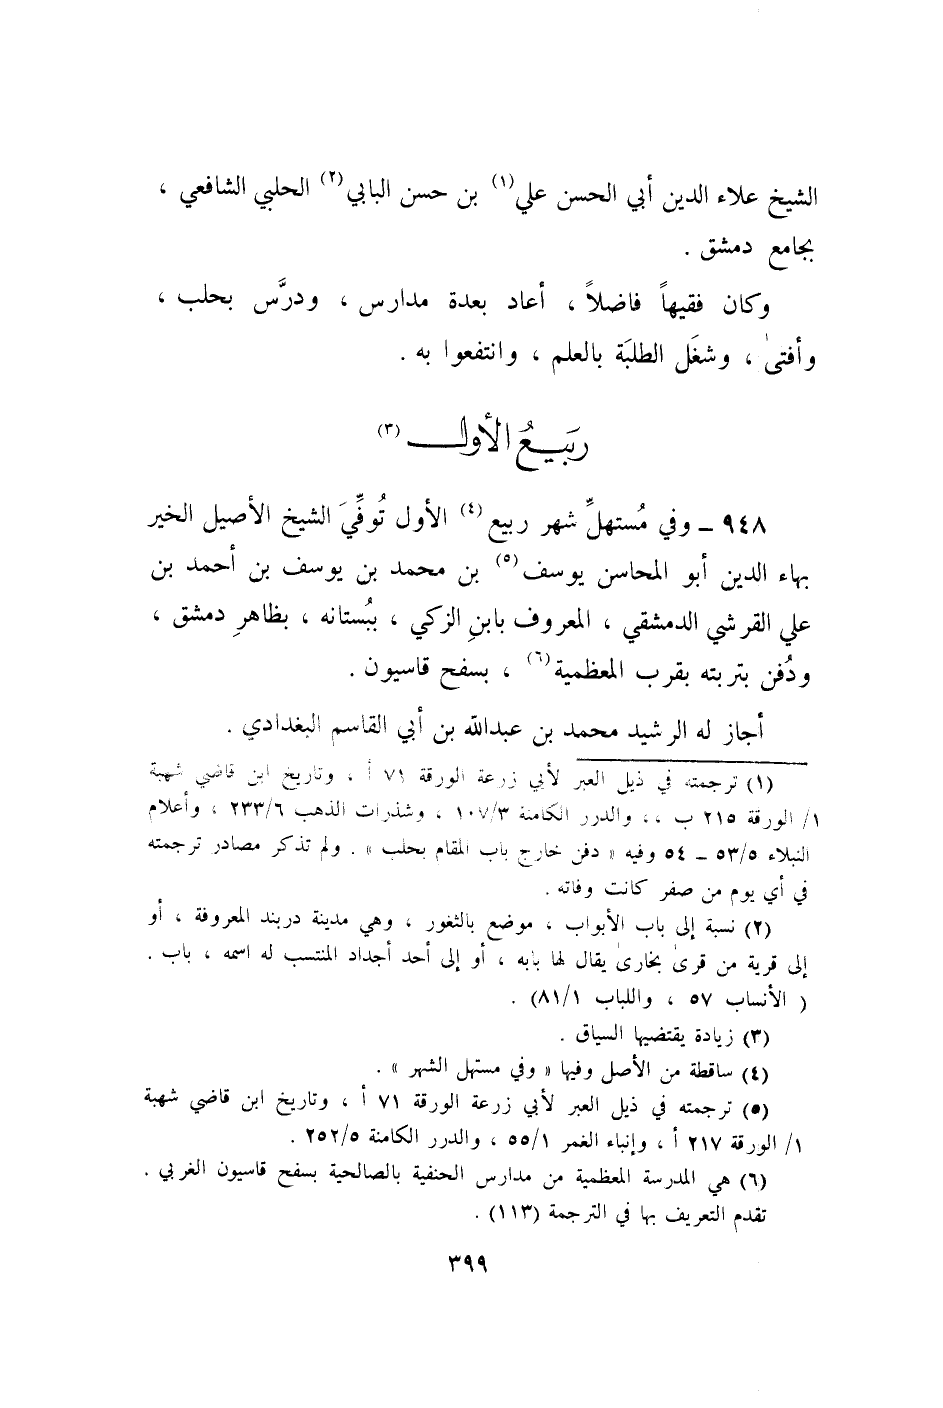 الشيخ علاء الدين أبي الحسن علي(١) بن حسن البابي(٢) الحلبي الشافعي ،
بجامع دمشق .
وكان فقيهاً فاضلاً ، أعاد بعدة مدارس ، ودرَّس بحلب ،
وأفتىٰ ، وشغَل الطلبَة بالعلم ، وانتفعوا به .
ربَيعُ الأول (٣)
٩٤٨ ــ وفي مُستهلِّ شهر ربيع(٤) الأول تُوفِّيَ الشيخ الأصيل الخير
بهاء الدين أبو المحاسن يوسف(٥) بن محمد بن يوسف بن أحمد بن
علي القرشي الدمشقي ، المعروف بابنِ الزكي ، ببُستانه ، بظاهرِ دمشق ،
ودُفن بتربته بقرب المعظمية(٦) ، بسفح قاسيون .
أجاز له الرشيد محمد بن عبدالله بن أبي القاسم البغدادي .
(١) ترجمته في ذيل العبر لأبي زرعة الورقة ٧١ أ ، وتاريخ ابن قاضي شهبة
١/ الورقة ٢١٥ ب ،، والدرر الكامنة ١٠٧/٣ ، وشذرات الذهب ٢٣٣/٦ ، وأعلام
النبلاء ٥٣/٥ ــ ٥٤ وفيه « دفن خارج باب المقام بحلب » . ولم تذكر مصادر ترجمته
في أي يوم من صفر كانت وفاته .
(٢) نسبة إلى باب الأبواب ، موضع بالثغور ، وهي مدينة دربند المعروفة ، أو
إلى قرية من قرىٰ بخارىٰ يقال لها بابه ، أو إلى أحد أجداد المنتسب له اسمه ، باب .
( الأنساب ٥٧ ، واللباب ٨١/١) .
(٣) زيادة يقتضيها السياق .
(٤) ساقطة من الأصل وفيها « وفي مستهل الشهر » .
(٥) ترجمته في ذيل العبر لأبي زرعة الورقة ٧١ أ ، وتاريخ ابن قاضي شهبة
١/ الورقة ٢١٧ أ ، وإنباء الغمر ٥٥/١ ، والدرر الكامنة ٢٥٢/٥ .
(٦) هي المدرسة المعظمية من مدارس الحنفية بالصالحية بسفح قاسيون الغربي .
تقدم التعريف بها في الترجمة (١١٣) .
٣٩٩